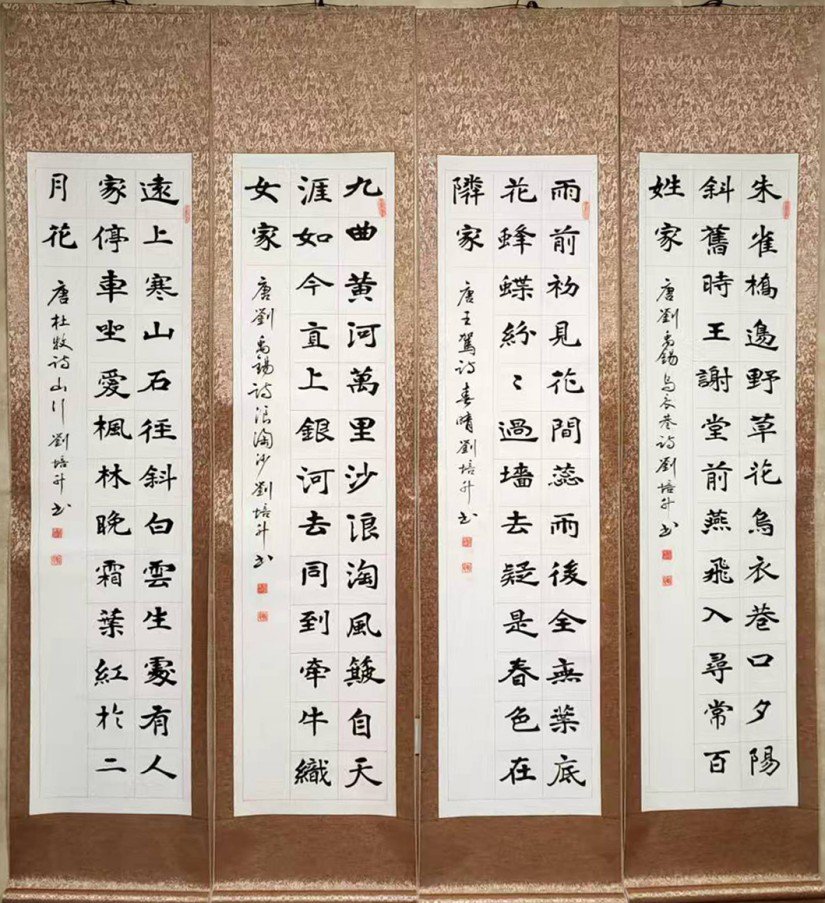 朱雀橋邊野草花烏衣巷口夕陽
斜舊時王謝堂前燕飛入尋常百
姓家
唐劉禹錫烏衣巷诗劉培升书
雨前初見花間蕊雨後全無葉底
花蜂蝶紛〻過墻去疑是春色在
隣家
唐王駕诗春晴劉培升书
九曲黃河萬里沙浪淘風簸自天
涯如今直上銀河去同到牽牛織
女家
唐劉禹錫诗浪淘沙劉培升书
遠上寒山石徑斜白雲生處有人
家停車坐愛楓林晚霜葉紅於二
月花
唐杜牧诗山行劉培升书